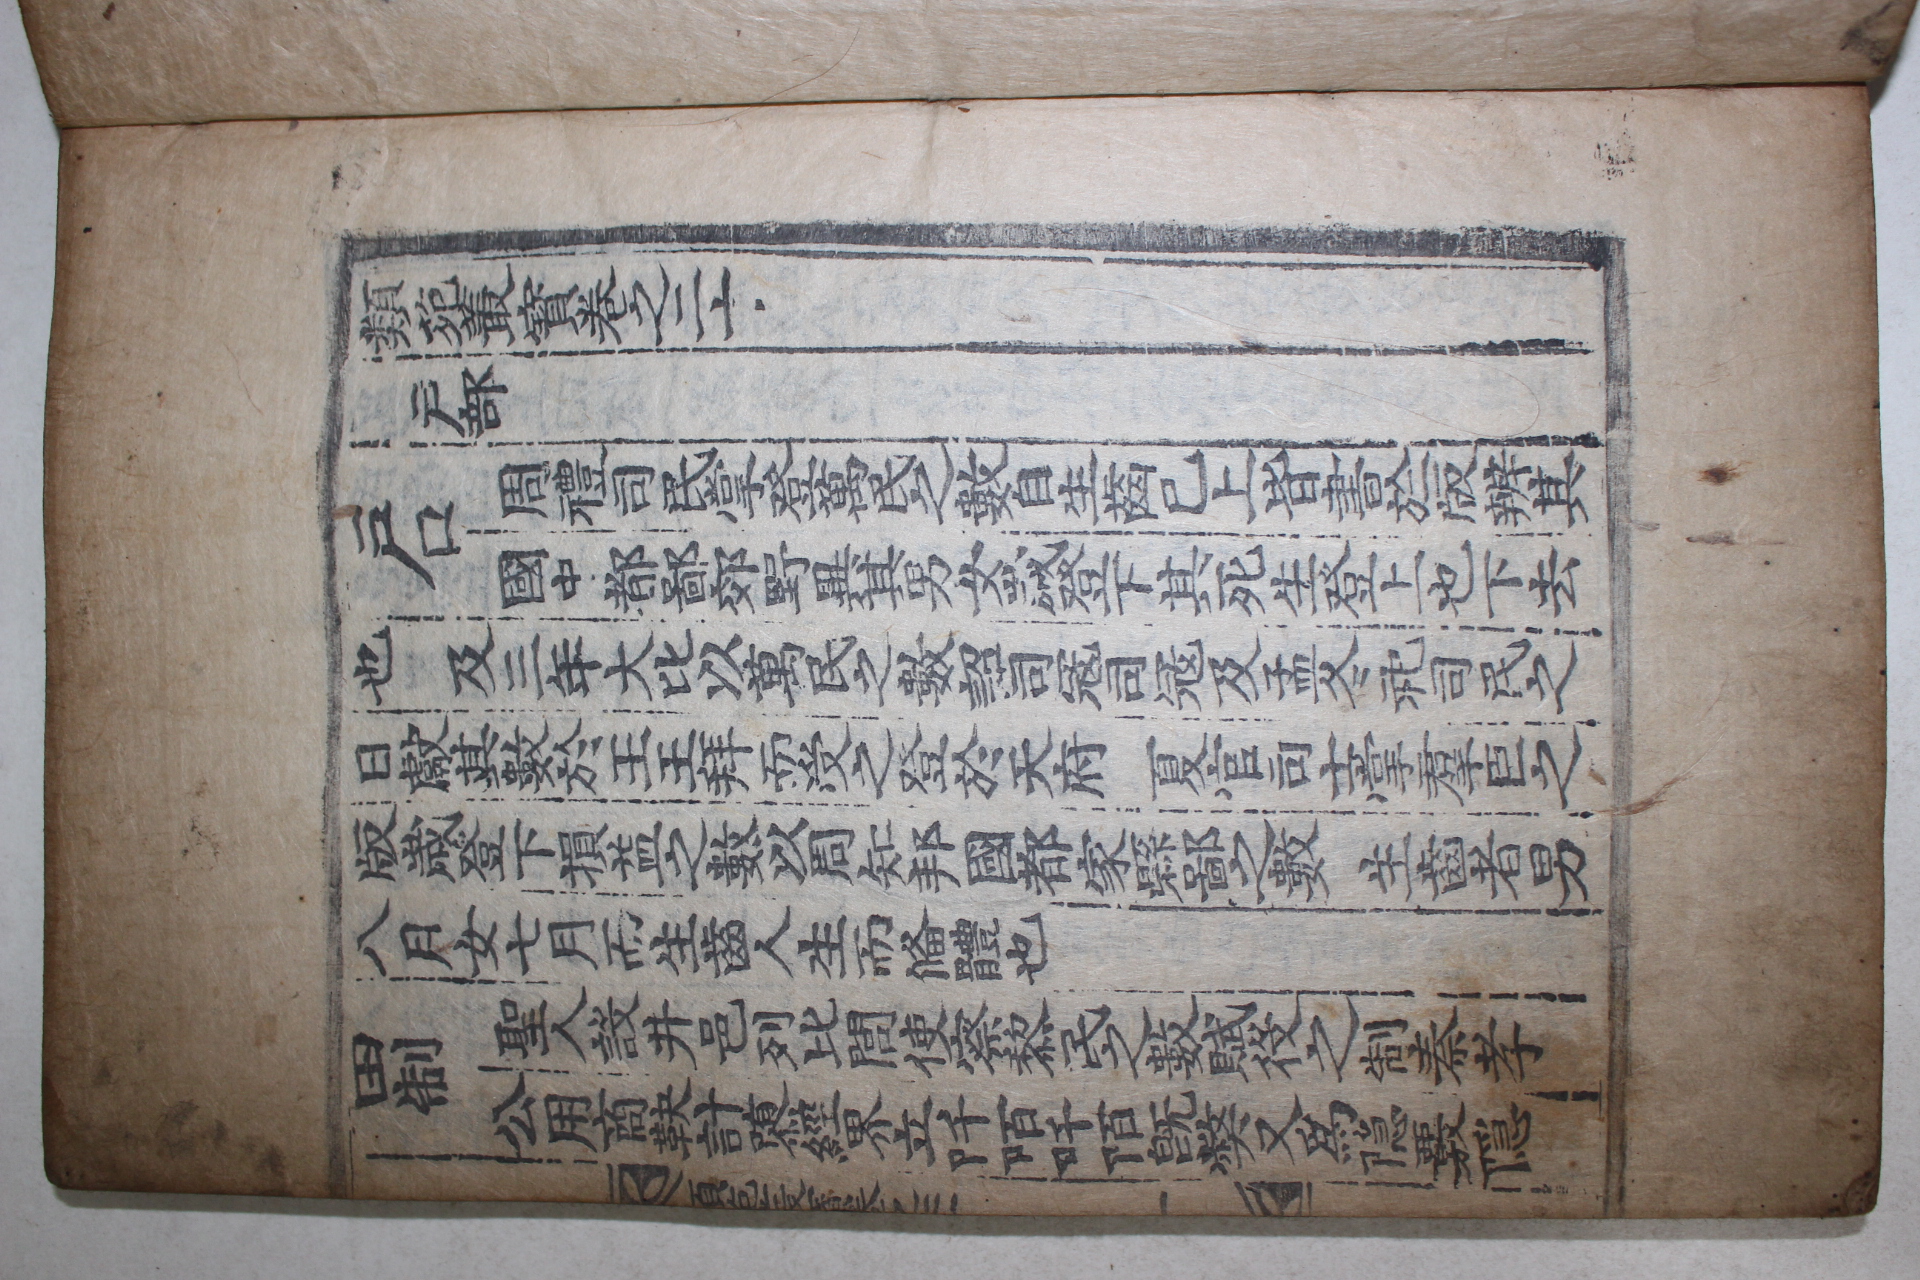 類苑叢寶卷之二十一
戶部
戶口 周禮司民掌登萬民之數自生齒已上皆書於版辨其
國中都鄙郊野異其男女歲登下其死生登上也下去
也 及三年大比以萬民之數詔司寇司寇及孟冬祀司民之
日獻其數於王王拜而受之登於天府 夏官司士掌羣臣之
版歲登下損益之數以周知邦國都家縣鄙之數 生齒者男
八月女七月而生齒人生而備體也
田制 聖人設井邑列比閭使察黎民之數賦役之制秦孝
公用商鞅計隤經界立阡陌阡陌旣弊又爲隱覈隱